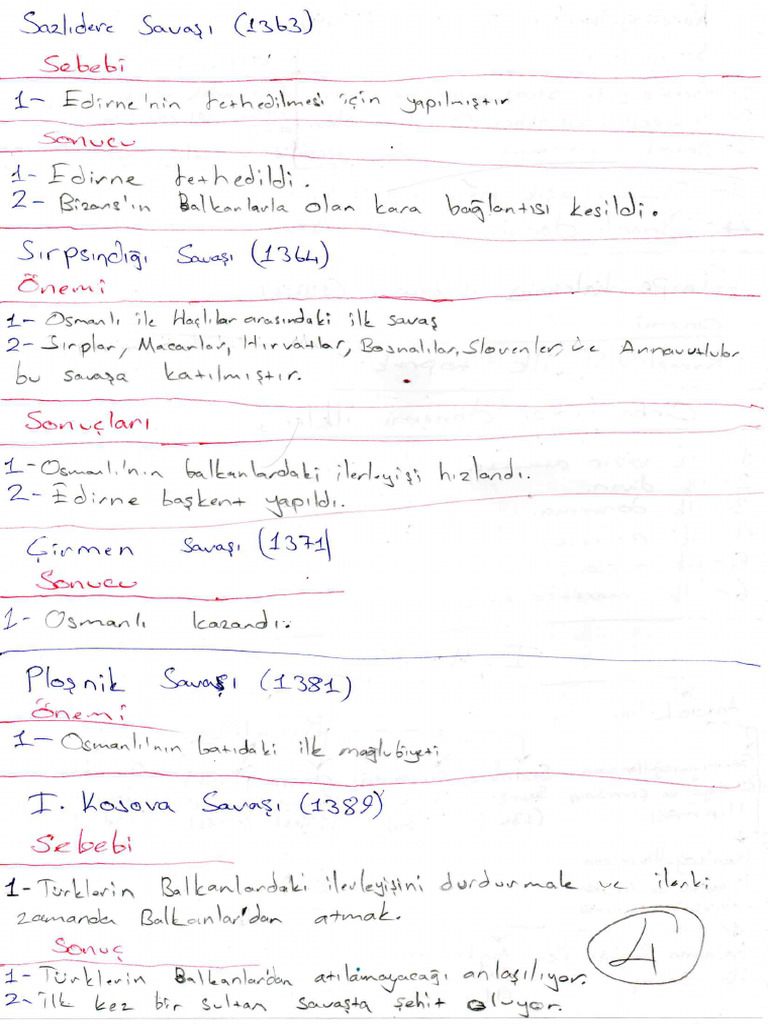 Sazlıdere Savaşı (1363)
Sebebi
1- Edirne'nin fethedilmesi için yapılmıştır
Sonucu
1- Edirne fethedildi.
2- Bizans'ın Balkanlarla olan kara bağlantısı kesildi.
Sırpsındığı Savaşı (1364)
Önemi
1- Osmanlı ile Haçlılar arasındaki ilk savaş
2- Sırplar, Macarlar, Hırvatlar, Bosnalılar, Slovenler, ve Arnavutlular
bu savaşa katılmıştır.
Sonuçları
1- Osmanlı'nın balkanlardaki ilerleyişi hızlandı.
2- Edirne başkent yapıldı.
Çirmen Savaşı (1371)
Sonucu
1- Osmanlı kazandı.
Ploşnik Savaşı (1381)
Önemi
1- Osmanlı'nın batıdaki ilk mağlubiyeti
I. Kosova Savaşı (1389)
Sebebi
1- Türklerin Balkanlardaki ilerleyişini durdurmak ve ilerki
zamanda Balkanlar'dan atmak.
Sonuç
1- Türklerin Balkanlar'dan atılamayacağı anlaşılıyor.
2- İlk kez bir sultan savaşta şehit oluyor.
4